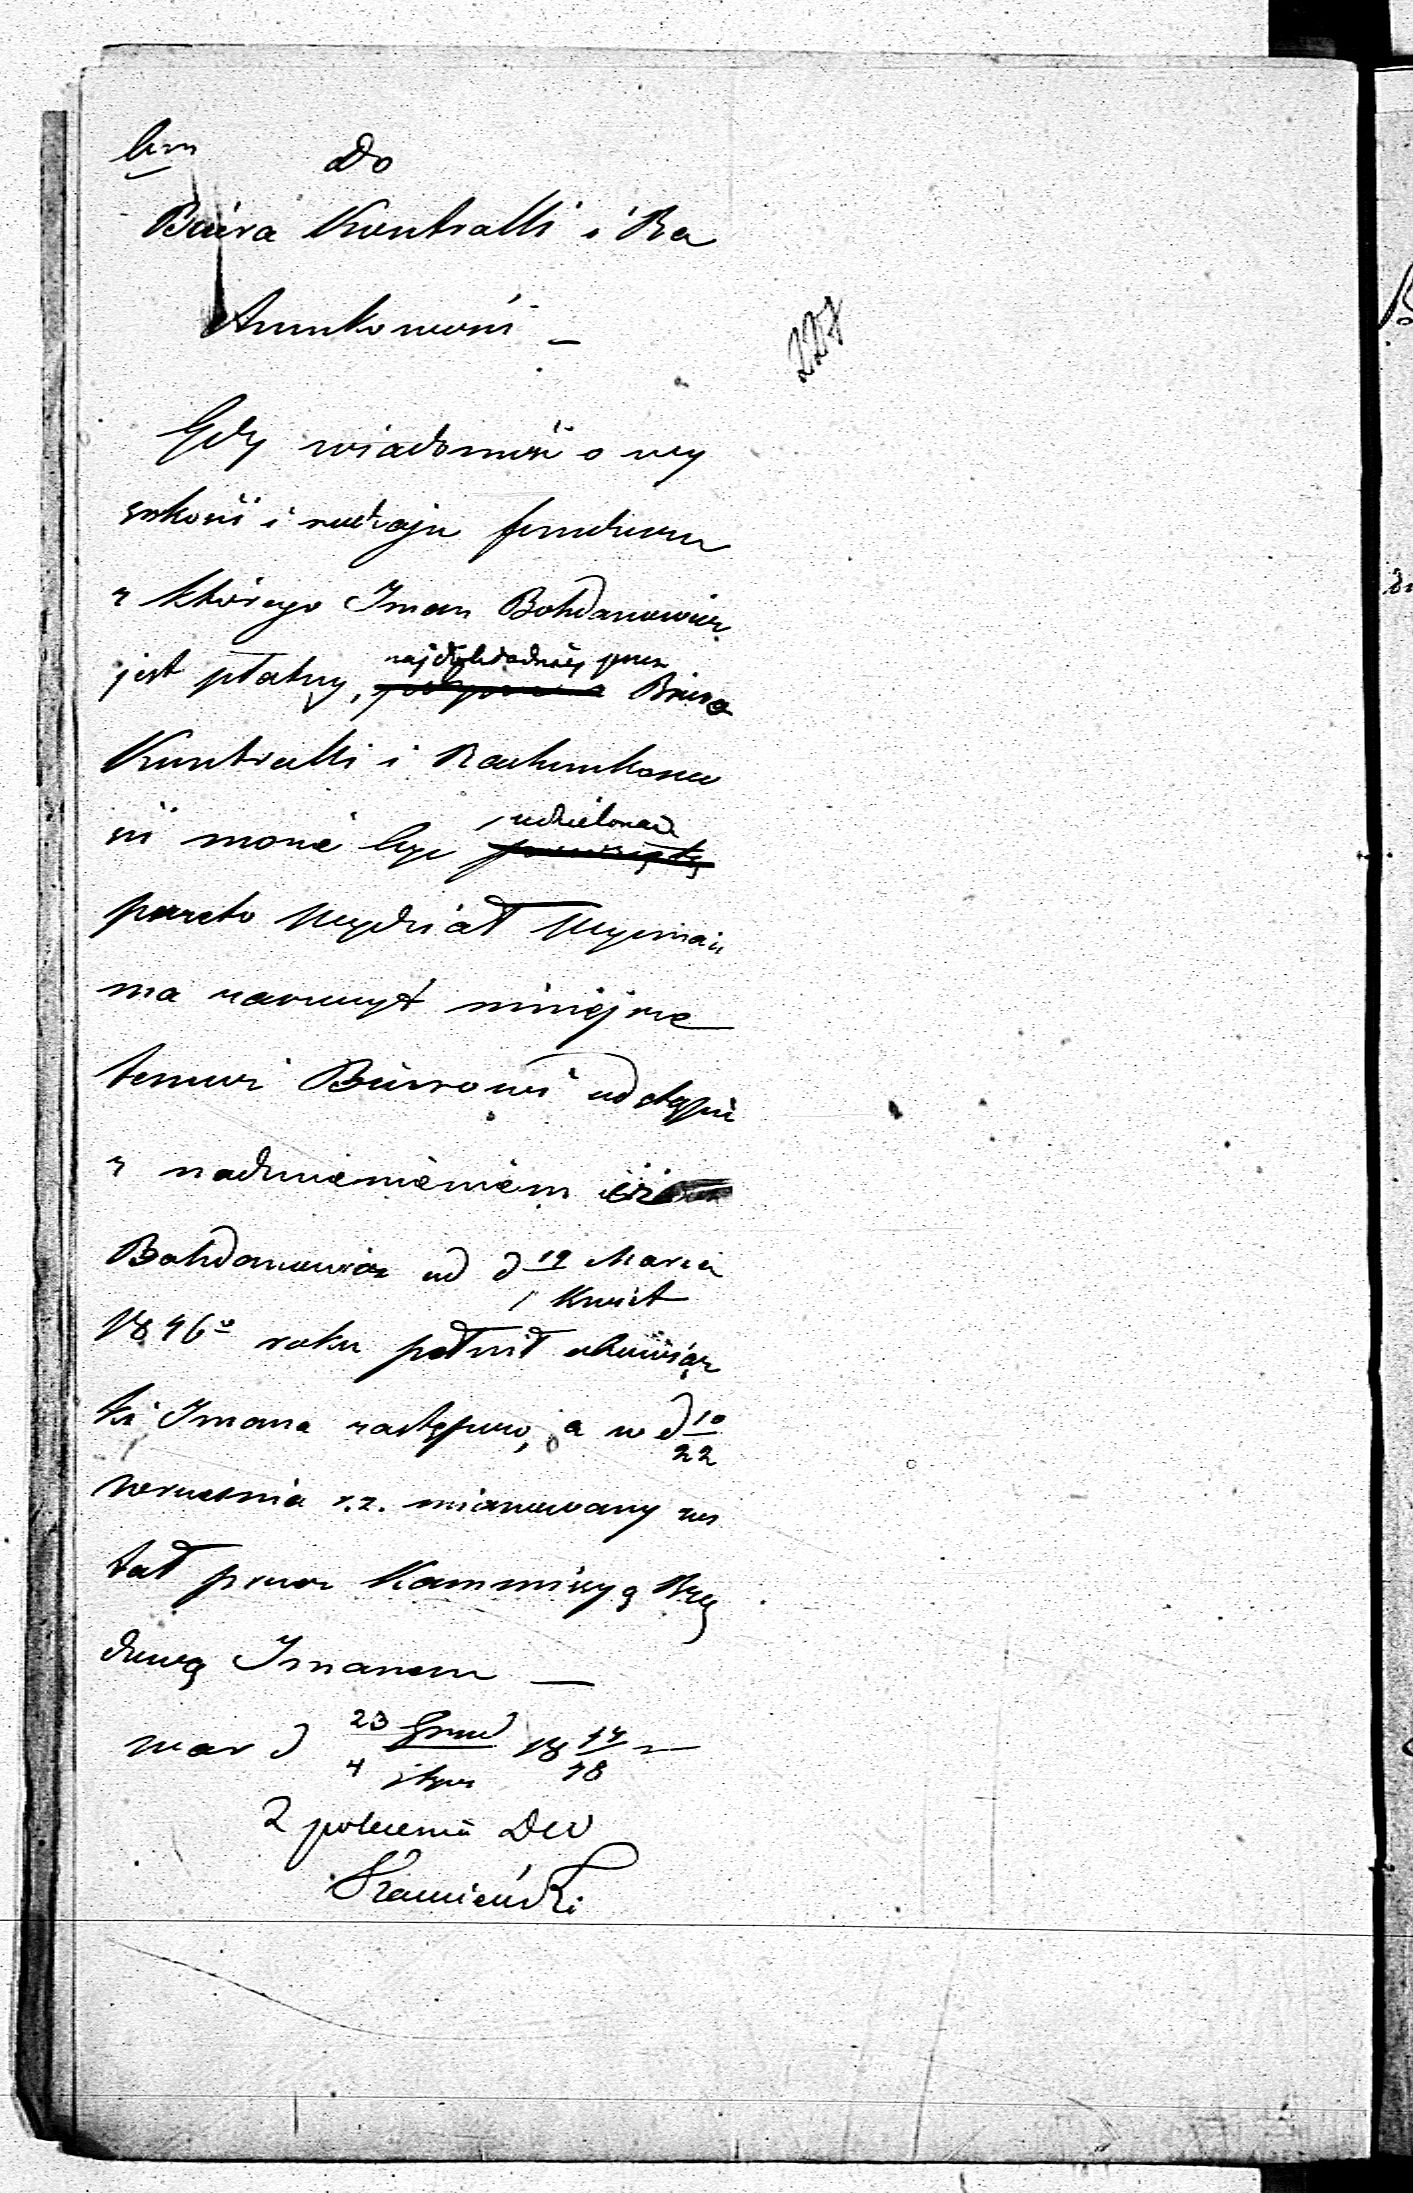 Do
Biura Kontrolli i Ra
chunkowości —
227
Gdy wiadomość o wy
sokości i rodzaju funduszu
z którego Iman Bohdanowicz
jest płatny, najdokładniej przez Biuro
Kontrolli i Rachunkowo
ści może być udzieloną
przeto Wydział Wyznań
ma zaszczyt niniejsze
temuż Biurowi odstąpić
z nadmienieniem iż
Bohdanowicz od d 19 Marca
1 Kwiet
1846º roku pełnił obowiąz
ki Imana zastępczo, a w d 10/22
Września r.z. mianowany zos
tał przez Kommissyą Rzą
dową Imanem —
War d 23 Grud 18 47/48
4 Stycz
Z polecenia DW